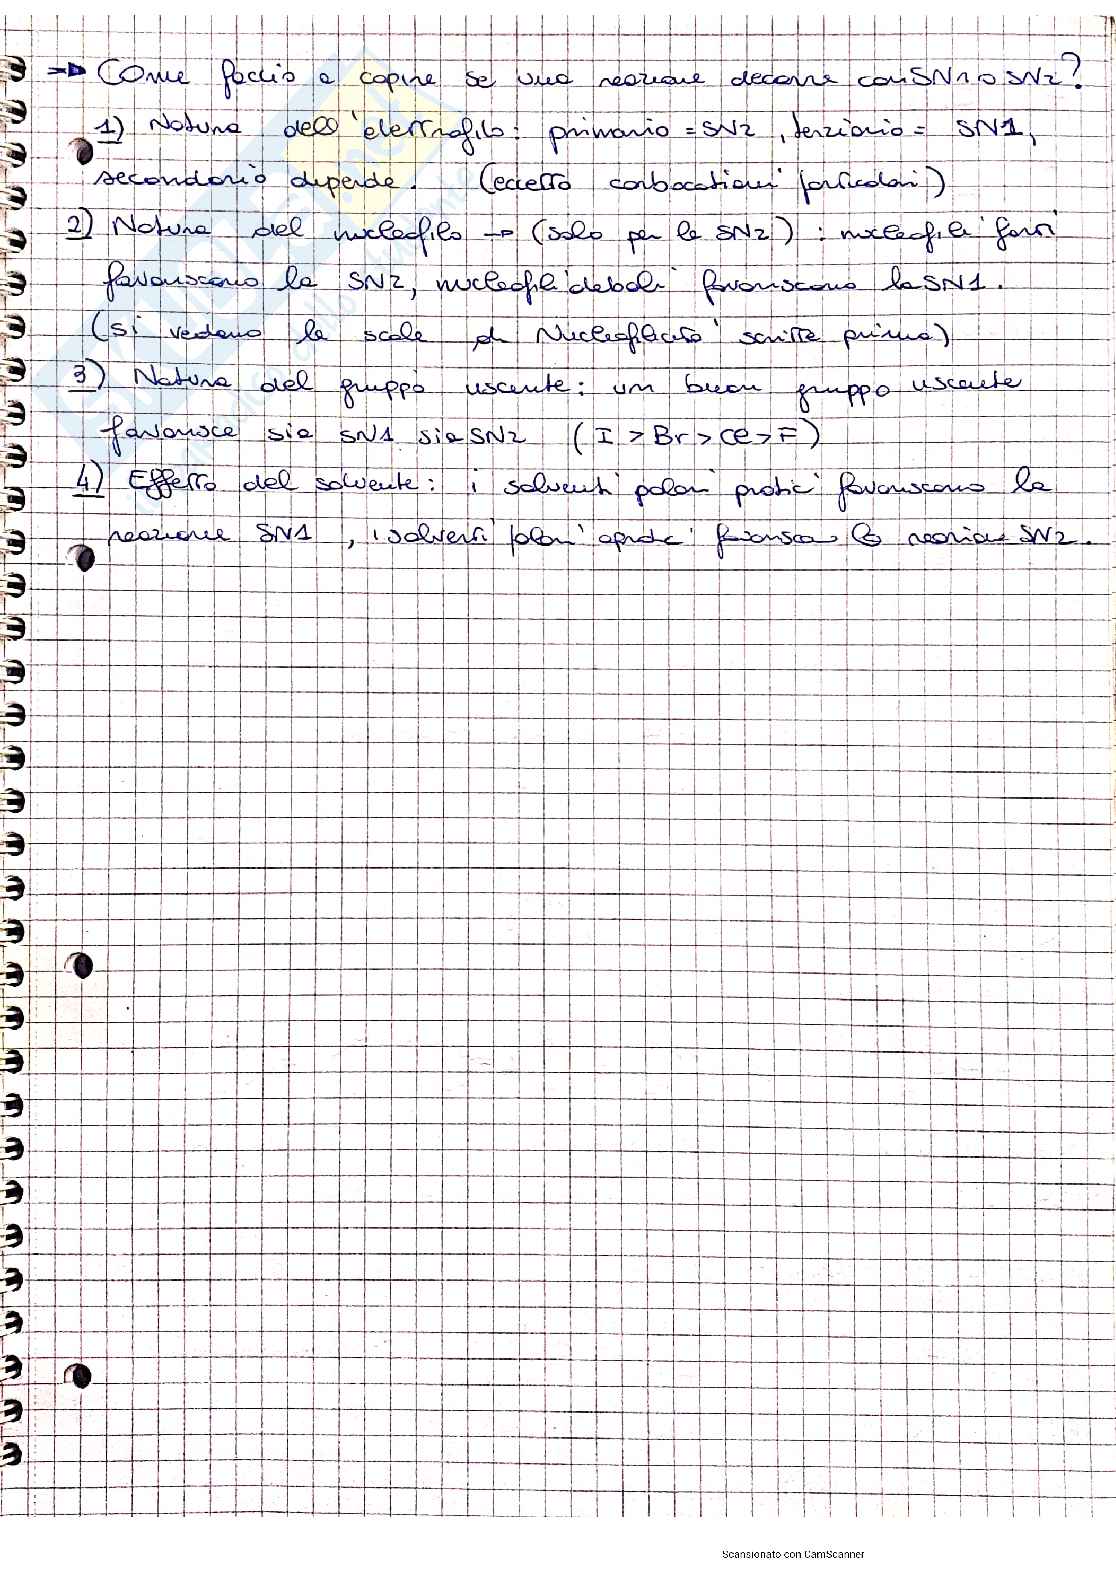 → Come faccio a capire se una reazione decorre con SN1 o SN2?
1) Natura dell'elettrofilo: primario = SN2, terziario = SN1,
secondario dipende. (eccetto carbocationi particolari)
2) Natura del nucleofilo → (solo per la SN2): nucleofili forti
favoriscono la SN2, nucleofili deboli favoriscono la SN1.
(si vedano le scale di Nucleofilicità scritte prima)
3) Natura del gruppo uscente: un buon gruppo uscente
favorisce sia SN1 sia SN2 (I > Br > Cl > F)
4) Effetto del solvente: i solventi polari protici favoriscono la
reazione SN1, i solventi polari aprotici la reazione SN2.
Scansionato con CamScanner